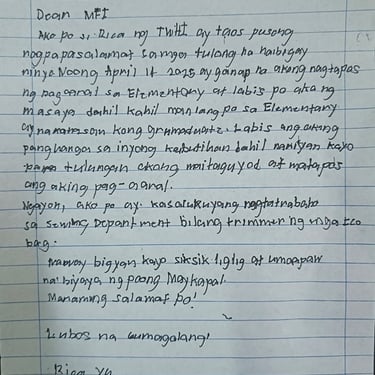 Dear MFI
Ako po si Rica ng TWHI ay taos pusong
nagpapasalamat sa mga tulong na naibigay
ninyo. Noong April 14 2025 ay ganap na akong nagtapos
ng pag aaral sa Elementary at labis po akong
masaya dahil kahit man lang po sa Elementary
ay naranasan kong grumaduate. Labis ang aking
paghanga sa inyong kabutihan dahil nariyan kayo
para tulungan akong maitaguyod at matapos
ang aking pag-aaral.
Ngayon, ako po ay kasalukuyang nagtatrabaho
sa Sewing Department bilang trimmer ng mga Eco
bag.
Naway bigyan kayo siksik liglig at umaapaw
na biyaya ng poong Maykapal.
Maraming salamat po!
Lubos na gumagalang!
Rica Yu